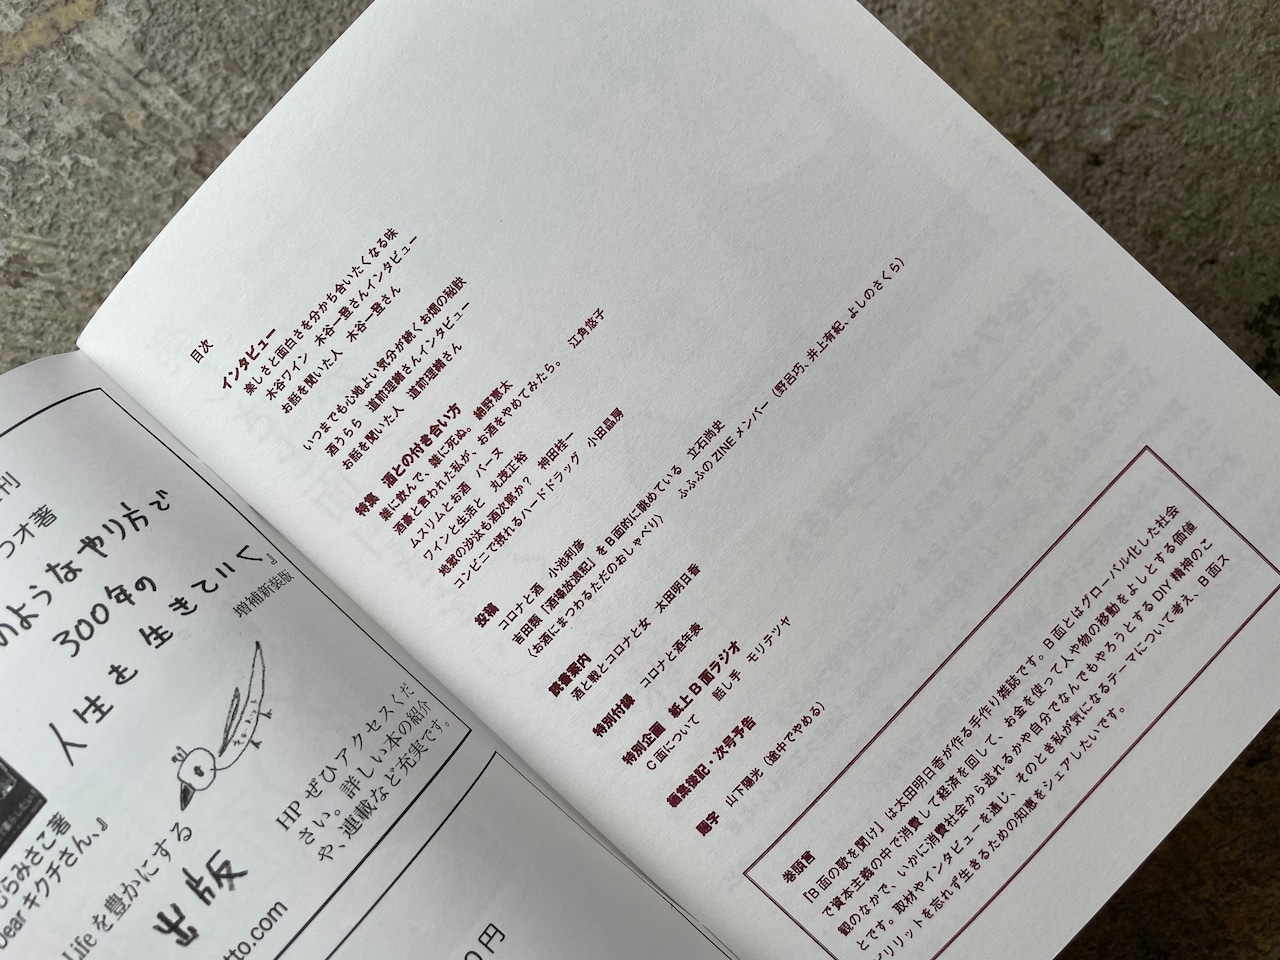 目次
インタビュー
楽しさと面白さを分かち合いたくなる味
木谷ワイン 木谷一登さんインタビュー
お話を聞いた人 木谷一登さん
いつまでも心地よい気分が続くお燗の秘訣
酒うらら 道前理緒さんインタビュー
お話を聞いた人 道前理緒さん
特集 酒との付き合い方
雑に飲んで、雑に死ぬ。 綿野恵太
酒豪と言われた私が、お酒をやめてみたら。 江角悠子
ムスリムとお酒 バーヌ
ワインと生活と 丸茂正裕
地獄の沙汰も酒次第か? 神田桂一
コンビニで摂れるハードドラッグ 小田晶房
投稿
コロナと酒 小池利彦
吉田類『酒場放浪記』をB面的に眺めている 立石尚史
(お酒にまつわるただのおしゃべり) ふふふのZINEメンバー(野呂巧、井上有紀、よしのさくら)
読書案内
酒と戦とコロナと女 太田明日香
特別付録 コロナと酒年表
特別企画 紙上B面ラジオ
C面について 話し手 モリテツヤ
編集後記・次号予告
題字 山下陽光(途中でやめる)
巻頭言
『B面の歌を聞け』は太田明日香が作る手作り雑誌です。B面とはグローバル化した社会
で資本主義の中で消費して経済を回して、お金を使って人や物の移動をよしとする価値
観のなかで、いかに消費社会から逃れるかや自分でなんでもやろうとするDIY精神のこ
とです。取材やインタビューを通じ、そのとき私が気になるテーマについて考え、B面ス
ピリットを忘れず生きるための知恵をシェアしたいです。
刊
つオ著
のようなやり方で
300年の
人生を生きていく』
増補新装版
HPぜひアクセスくだ
さい。詳しい本の紹介
や、連載など充実です。
らみさこ著
Dearキクチさん、』
Lifeを豊かにする
出版
tto.com
0円